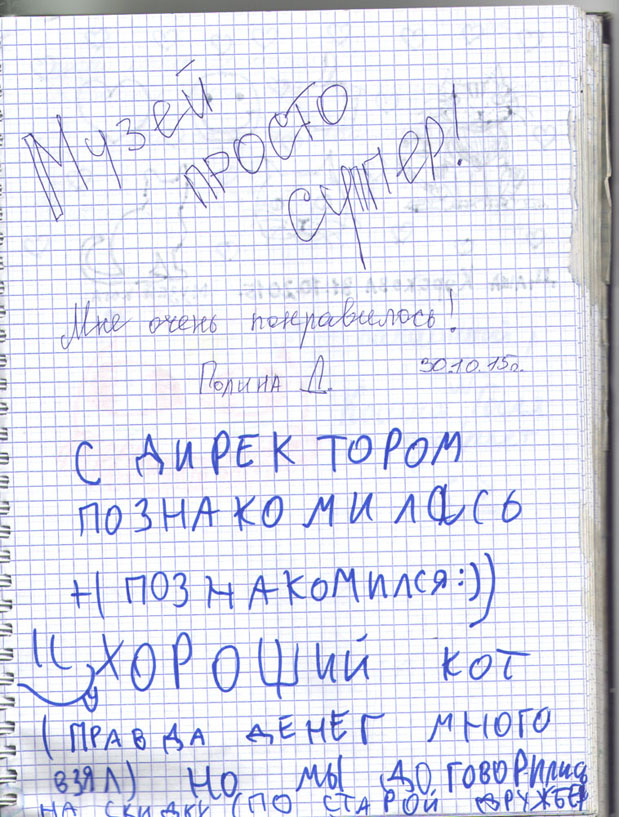 Музей
просто
суппер!
Мне очень понравилось!
Полина Д. 30.10.15г.
С ДИРЕКТОРОМ
ПОЗНАКОМИЛАСЬ
+1 ПОЗНАКОМИЛСЯ:))
ХОРОШИЙ КОТ
(ПРАВДА ДЕНЕГ МНОГО
ВЗЯЛ) НО МЫ ДОГОВОРИЛИСЬ
НА СКИДКИ (ПО СТАРОЙ ДРУЖБЕ